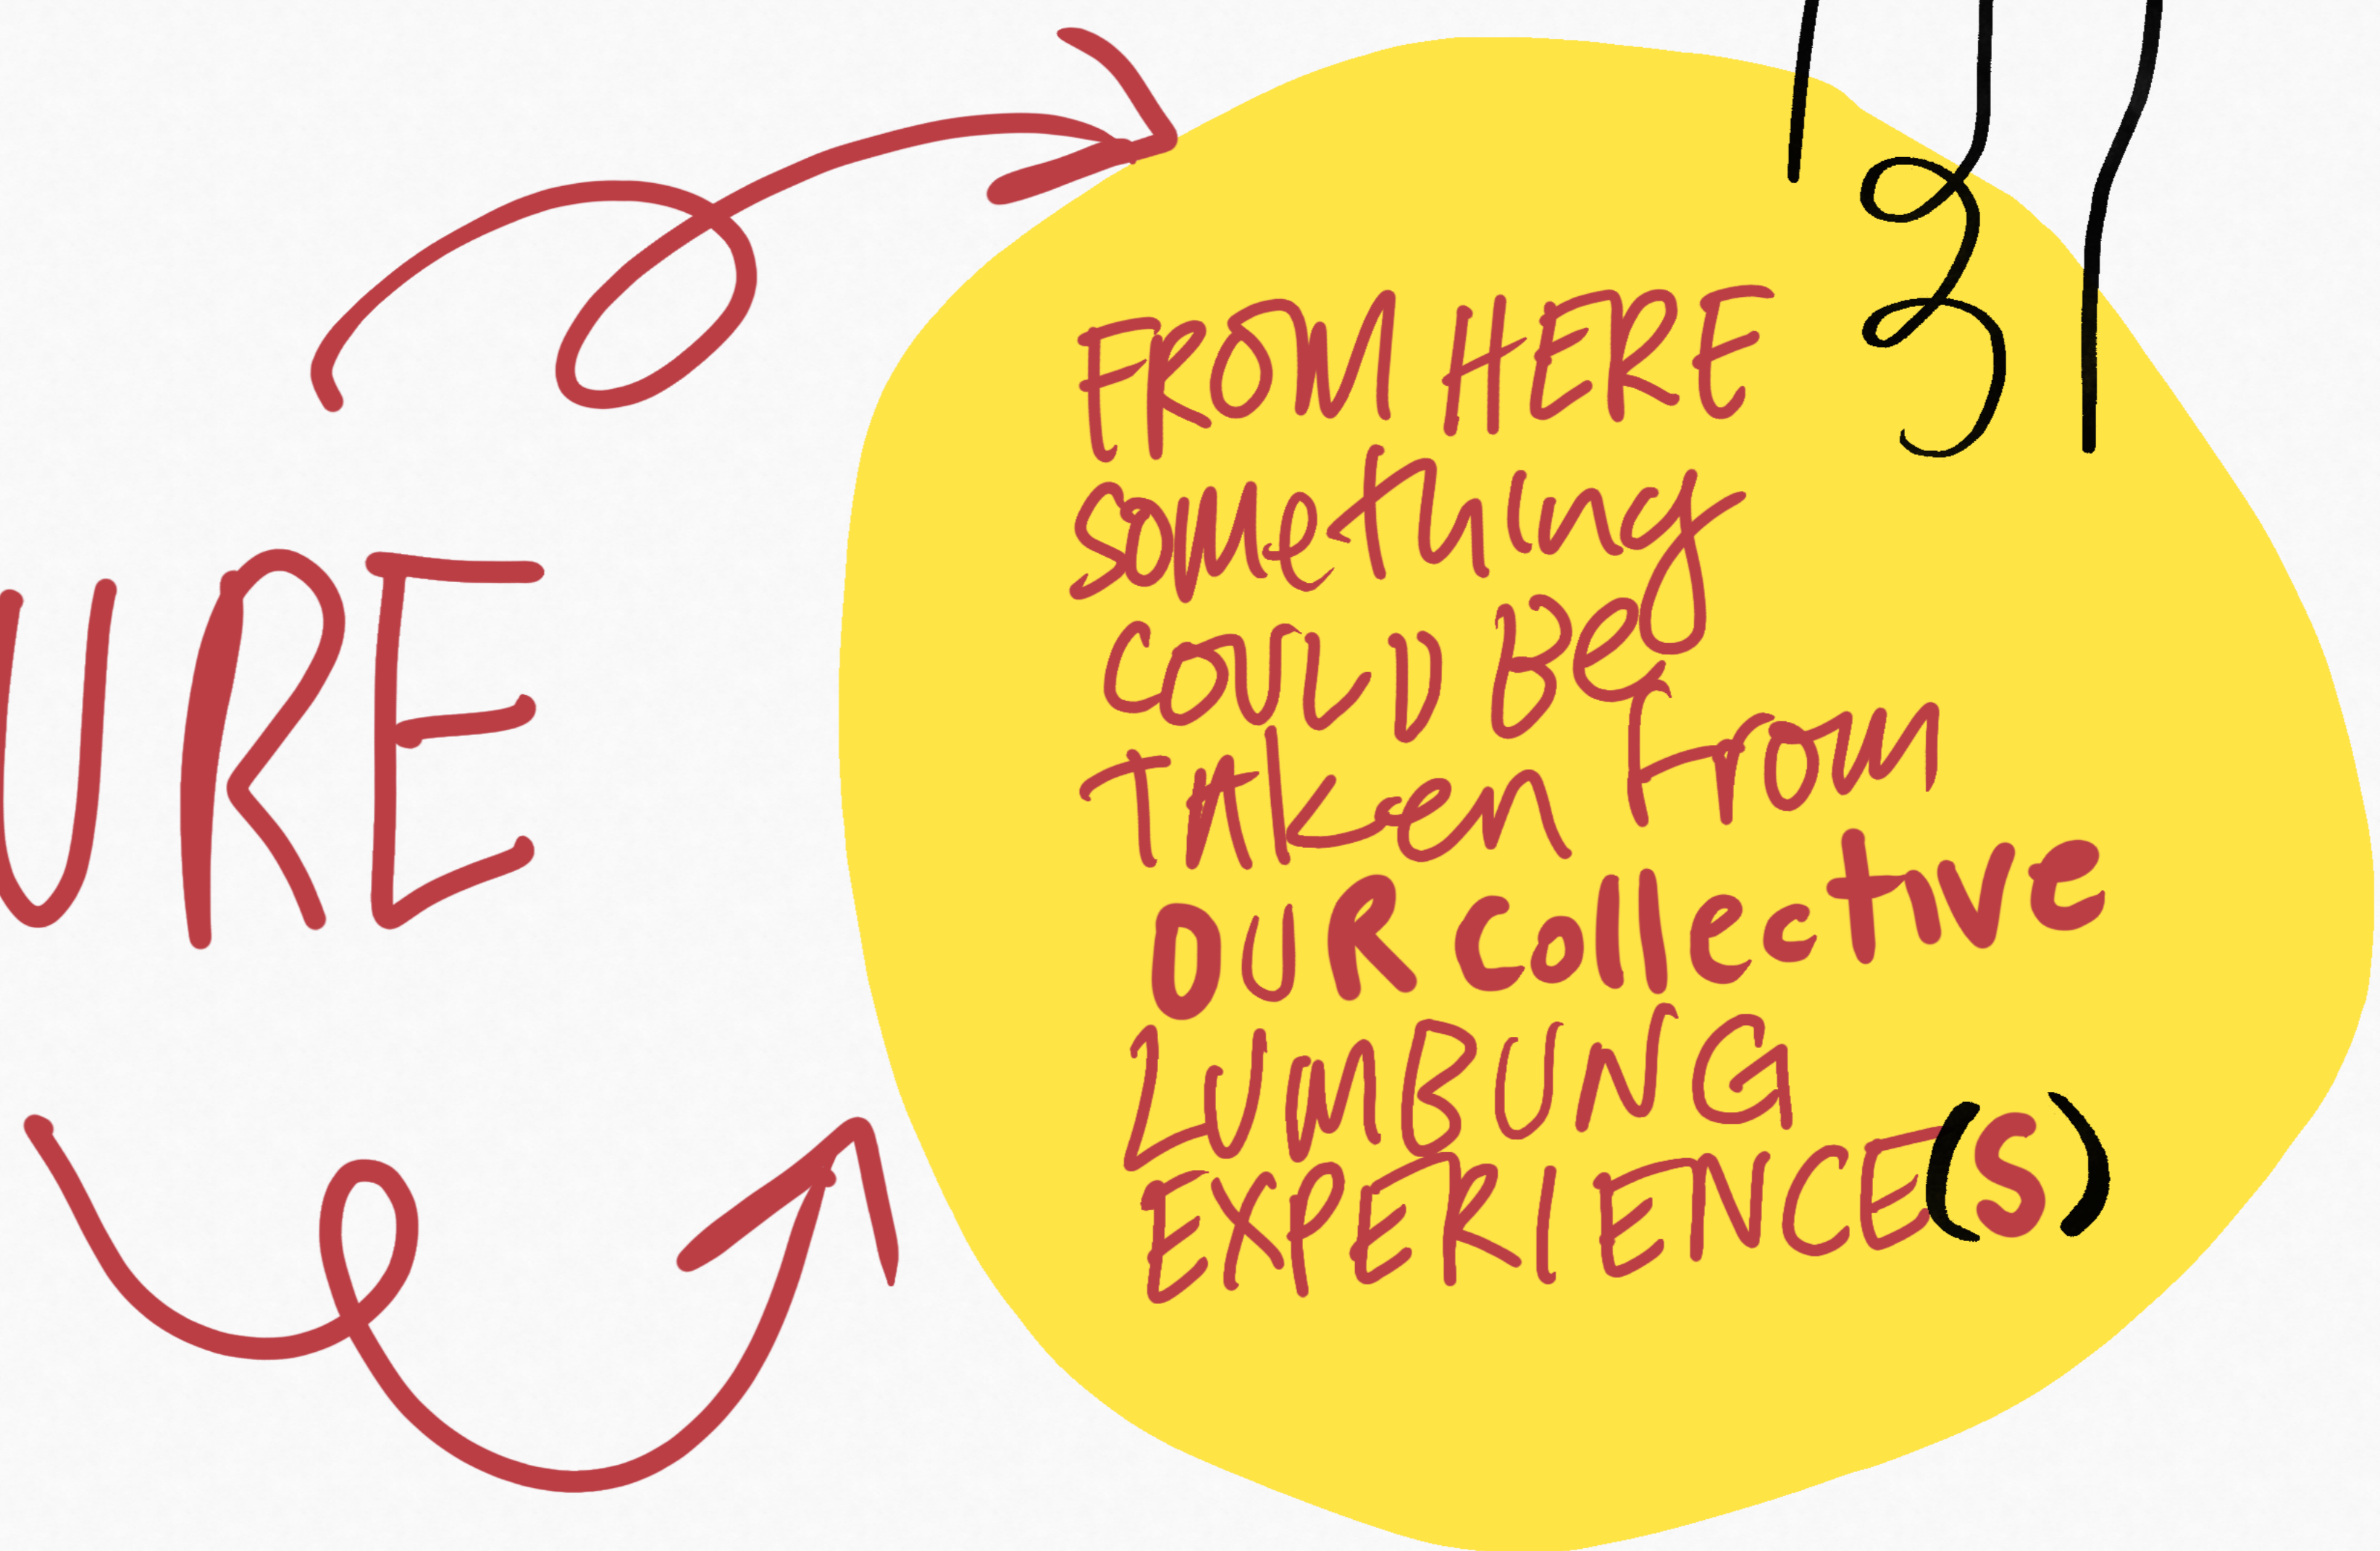 URE
FROM HERE
something
COULD Be
TAken From
OUR collective
LUMBUNG
EXPERIENCE(S)